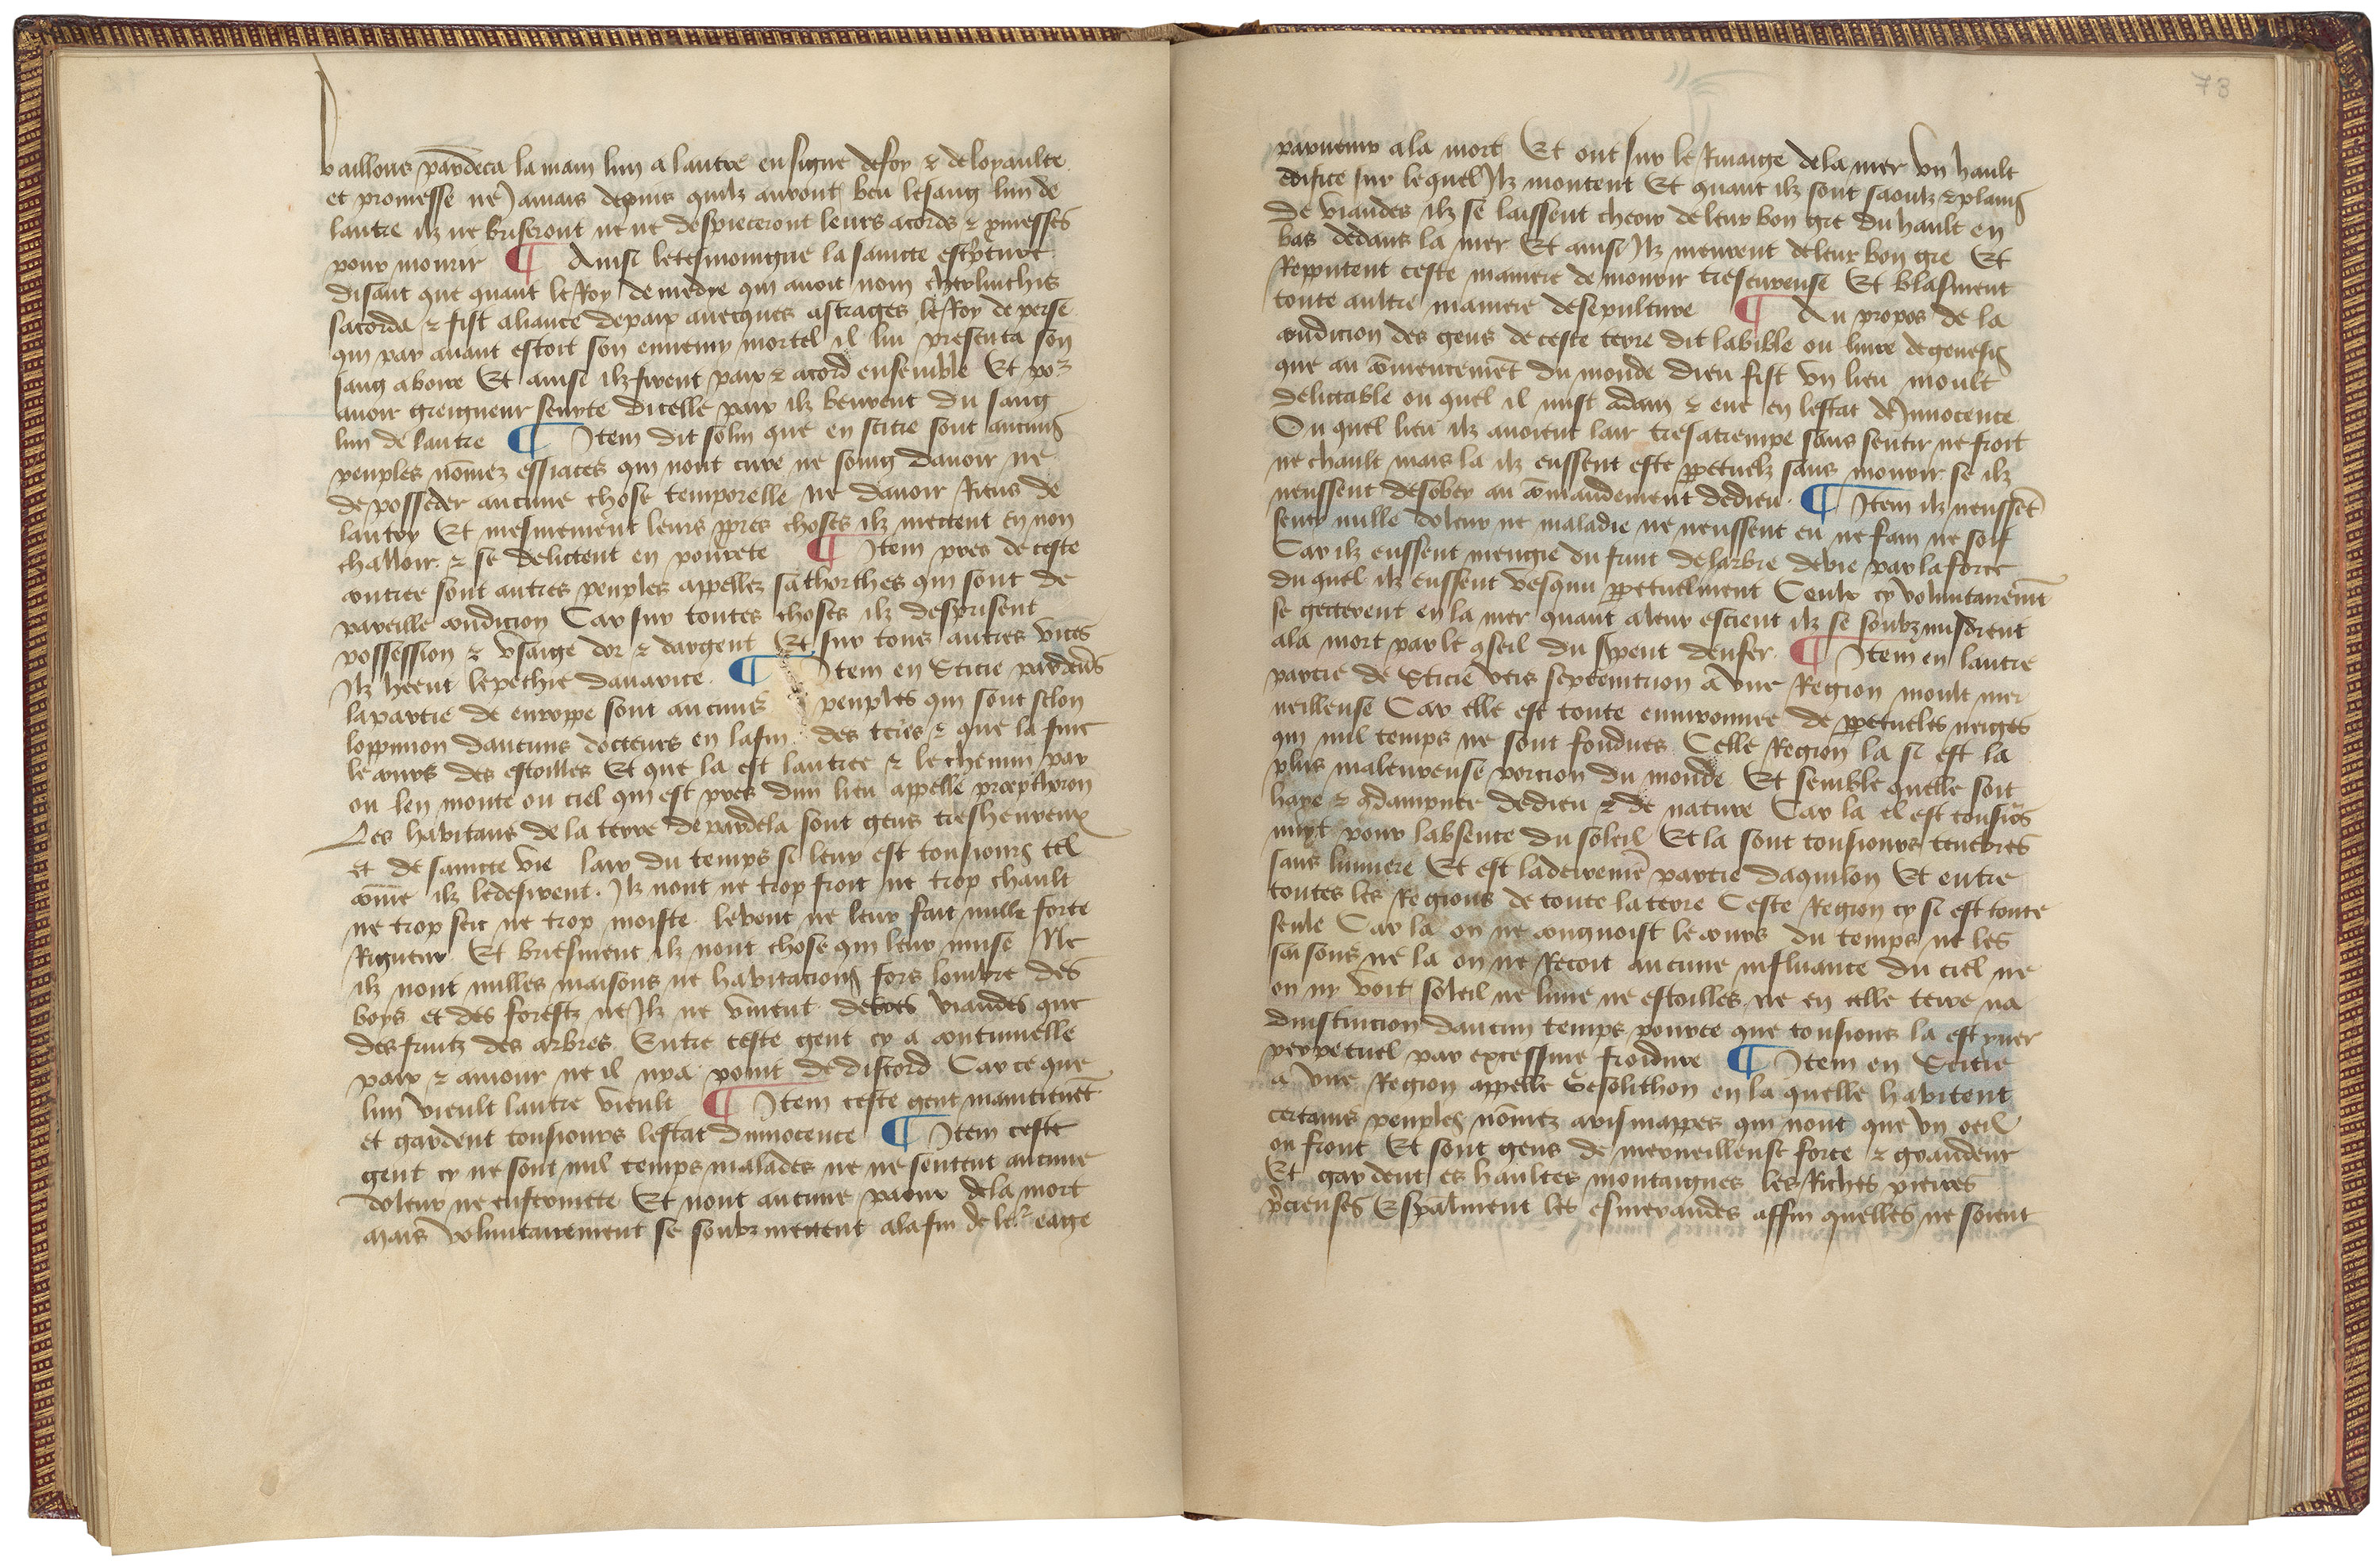 baillons pardeca la main lun a lautre en signe de foy & de loyaulte
et promesse ne Jamais depuis quilz auront beu le sang lun de
lautre ilz ne briseront ne ne despieceront leurs acords & pmesses
pour mourir ¶ Ainsi le tesmoingne la saincte escpture
disant que quant le Roy de medye qui auoit nom
sacorda & fist aliance de paix auecques astrages le Roy de perse
qui par auant estoit son ennemy mortel il lui presenta son
sang a boire Et ainsi ilz firent paix & acord ensemble Et por
auoir greigneur seurte dicelle paix ilz beurent du sang
lun de lautre ¶ Item dit solin que en scitie sont aucuns
peuples nomez essiaces qui nont cure ne soing dauoir ne
de posseder aucune chose temporelle ne dauoir Riens de
lautry Et mesmement leurs ppres choses ilz mettent en non
challoir & se delictent en pourete ¶ Item pres de ceste
contree sont autres peuples appellez sathorches qui sont de
pareille condicion Car sur toutes choses ilz desprisent
possession & vsaige dor & dargent Et sur tous autres vices
Ilz heent le pechie dauarice ¶ Item en Sticie par deuers
la partie de europpe sont aucuns peuples qui sont selon
loppinion daucuns docteurs en la fin des terres & que la fine
le cours des estoilles Et que la est lantree & le chemin par
ou len monte ou ciel qui est pres dun lieu appelle
Les habitans de la terre de pardela sont gens tresheureux
et de saincte vie lair du temps si leur est tousiours tel
come ilz le desirent. Ilz nont ne trop froit ne trop chault
ne trop sec ne trop moiste le vent ne leur fait nulle forte
Rigueur Et briefment ilz nont chose qui leur nuise Ne
ilz nont nulles maisons ne habitacions fors lombre des
boys et des forestz ne Ilz ne viuent viandes que
des fruitz des arbres Entre ceste gent cy a continuelle
paix & amour ne il nya point de discord Car ce que
lun vieult lautre vieult ¶ Item ceste gent maintienent
et gardent tousiours lestat dinnocence ¶ Item ceste
gent cy ne sont nul temps malades ne ne sentent aucune
doleur ne enfermete Et nont aucune paour de la mort
mais voluntairement se soubzmettent a la fin de ler eage
paruenir a la mort Et ont sur le Riuaige de la mer vn hault
edifice sur lequel Ilz montent Et quant ilz sont saoulz & plains
de viandes ilz se laissent cheoir de leur bon gre du hault en
bas dedans la mer Et ainsi Ilz meurent de leur bon gre Et
Repputent ceste maniere de mourir treseureuse Et blasment
toute aultre maniere de sepulture ¶ Au propos de la
condicion des gens de ceste terre dit la bible ou liure de genesis
que au comencement du monde Dieu fist vn lieu moult
delictable ou quel il mist adam & eue en lestat de Innocence
Ou quel lieu ilz auoient lair tresatrempe sans sentir ne froit
ne chault mais la ilz eussent este ppetuelz sans mourir se ilz
neussent desobey au comandement de dieu ¶ Item ilz neussent
senty nulle doleur ne maladie ne neussent eu ne fain ne soif
Car ilz eussent mengie du fruit de larbre de vie par la force
du quel ilz eussent vesquu ppetuelment Ceulx cy voluntairement
se getterent en la mer quant a leur escient ilz se soubzmisdrent
a la mort par le qseil du spent denfer ¶ Item en lautre
partie de Sticie vers septentrion a vne Region moult mer
ueilleuse Car elle est toute enuironnee de ppetueles neiges
qui nul temps ne sont fondues Celle Region la si est la
plus maleureuse porcion du monde Et semble quelle soit
haye & qdampnee de dieu & de nature Car la il est tousiors
nuyt pour labsence du soleil Et la sont tousiours tenebres
sans lumiere Et est la derreniere partie daquilon Et entre
toutes les Regions de toute la terre Ceste Region cy si est toute
seule Car la on ne congnoist le cours du temps ne les
saisons ne la on ne Recoit aucune influance du ciel ne
on ny voit soleil ne lune ne estoilles ne en celle terre na
distinction daucun temps pource que tousiours la est yuer
perpetuel par excessiue froidure ¶ Item en Sticie
a vne Region appelle Gesolithon en la quelle habitent
certains peuples nomez arismappes qui nont que vn oeil
ou front Et sont gens de merueilleuse force & grandeur
Et gardent es haultes montaignes les Riches pierres
pcieuses Espalment les esmeraudes affin quelles ne soient
78